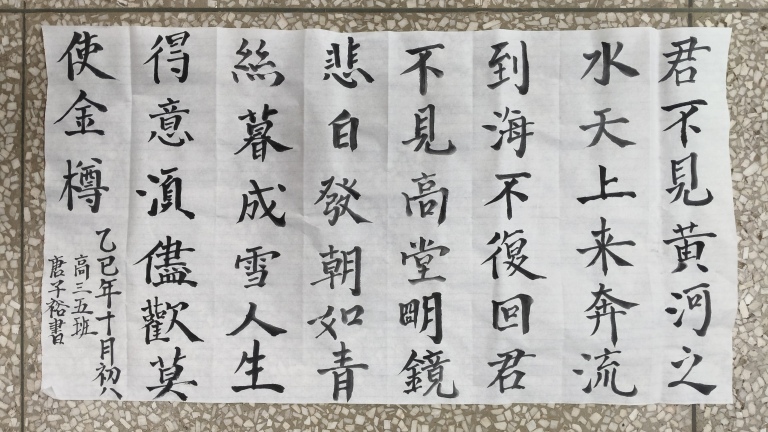 君不見黃河之
水天上来奔流
到海不復回君
不見高堂明鏡
悲白發朝如青
絲暮成雪人生
得意須儘歡莫
使金樽
乙巳年十月初八
高三五班
唐子裕書